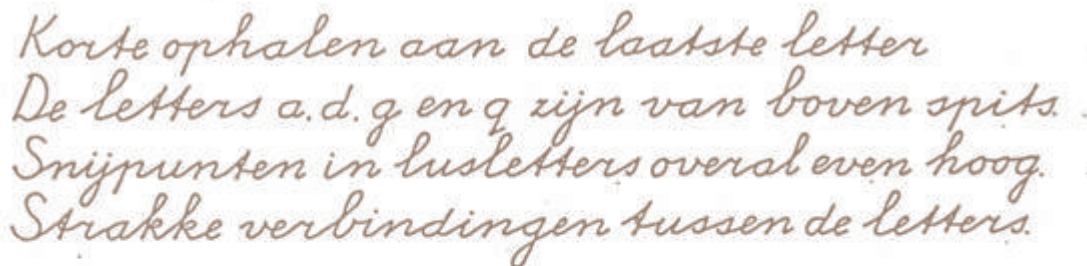 Korte ophalen aan de laatste letter
De letters a.d.g en q zijn van boven spits.
Snijpunten in lusletters overal even hoog.
Strakke verbindingen tussen de letters.